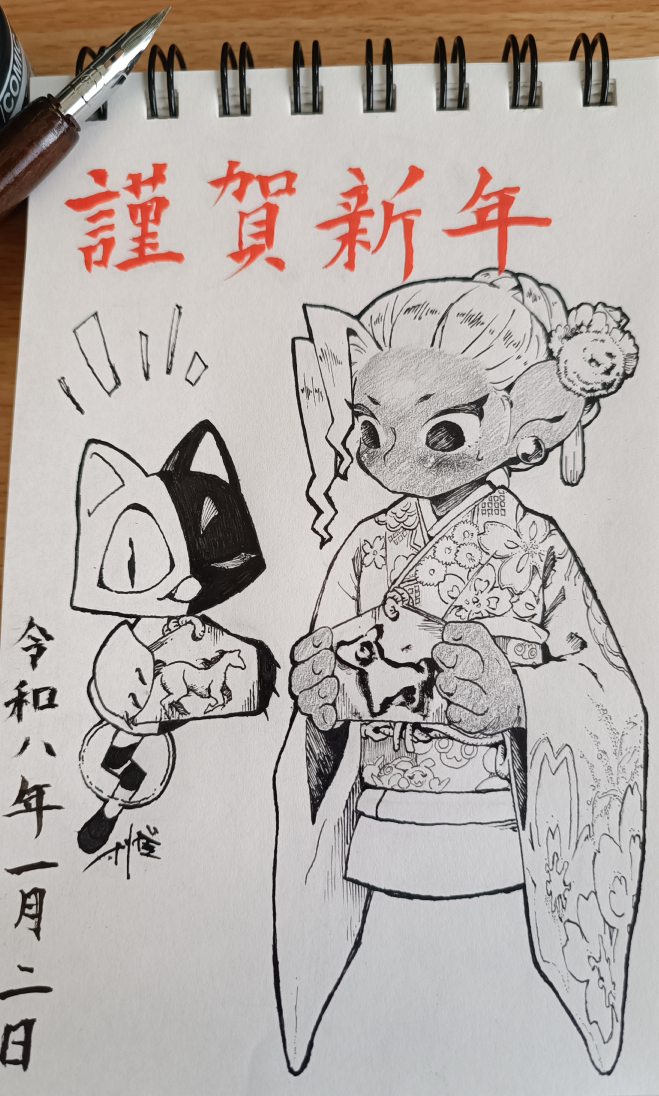 謹賀新年
令和八年一月二日
COMI